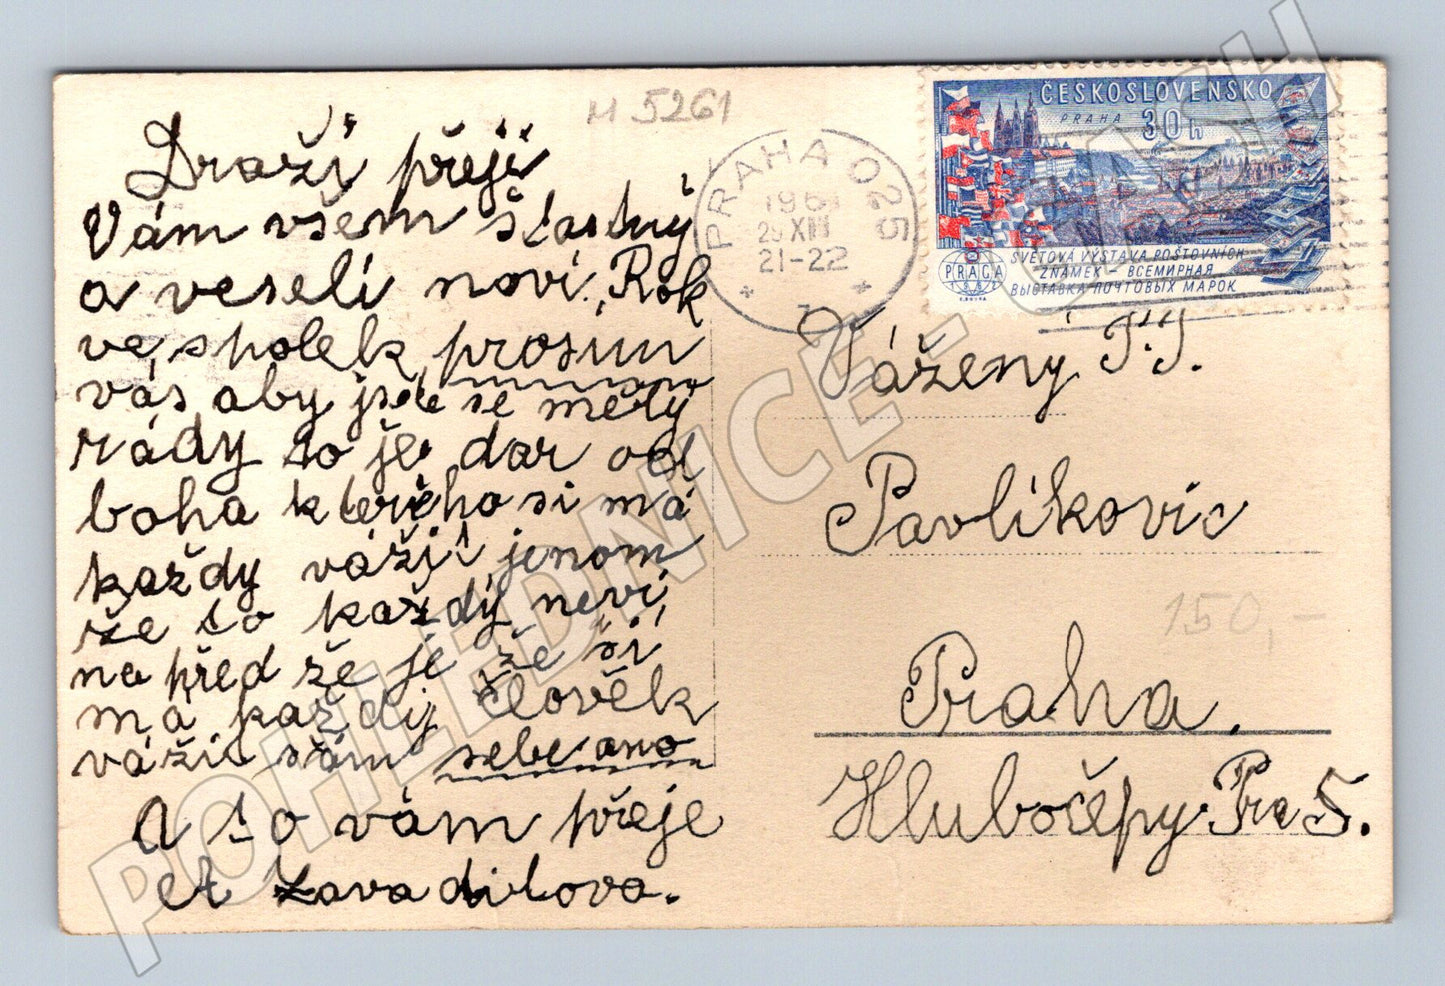 M 5261
Draží přeji
Vám všem štastný
a veselí noví Rok
ve spolek prosim
vás aby jste se měly
rády to je dar od
boha kterého si má
každy vážit jenom
že to každý neví,
na před že je že si
má každý človêk
vážit sám sebe ano
A to vám přeje
A Zavadilova.
PRAHA 025
1961
29 XII
21-22
7
ČESKOSLOVENSKO
PRAHA 30h
PRAGA
1962
SVĚTOVÁ VÝSTAVA POŠTOVNÍCH
ZNÁMEK - ВСЕМИРНАЯ
ВЫСТАВКА ПОЧТОВЫХ МАРОК
Váženy P.T.
Pavlíkovic
150,-
Praha.
Hlubočépy Pra 5.
POHLEDNICE-